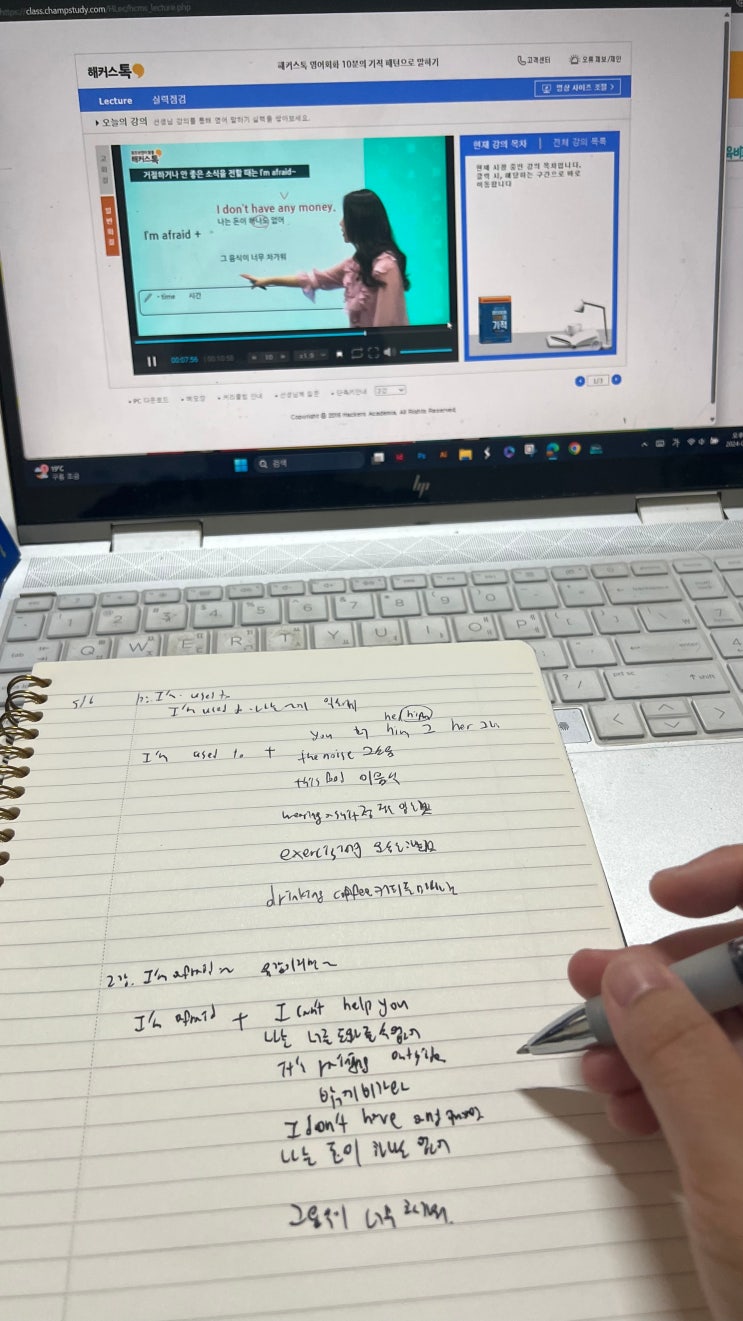 https://class.champstudy.com/HLec/hcms_lecture.php
해커스톡
해커스톡 영어회화 10분의 기적 패턴으로 말하기
고객센터
오류 제보/제안
Lecture 실력점검
영상 사이즈 조절 >
오늘의 강의 선생님 강의를 통해 영어 말하기 실력을 쌓아보세요.
해커스톡
거절하거나 안 좋은 소식을 전할 때는 I'm afraid~
I don't have any money.
나는 돈이 하나도 없어
I'm afraid +
그 음식이 너무 차가워
- time 시간
00:07:56 00:10:58
x1.0
현재 강의 목차 | 전체 강의 목록
현재 시청 중인 강의 목차입니다.
클릭 시, 해당하는 구간으로 바로
이동합니다
기적
1/3
PC 다운로드 메모장 커리큘럼 안내 선생님께 질문 단축키안내
Copyright ⓒ 2016 Hackers Academia. All Rights Reserved.
19°C
구름 조금
검색
hp
5/6
I'm used to
I'm used to
you him her
I'm used to + the noise
this 이음식
exercising
drinking coffee 커피를 마시는
2강. I'm afraid ~
I'm afraid + I can't help you
나는 너를 도와줄 수 없어
It's outside
밖에 비가와
I don't have any
나는 돈이 하나도 없어
그음식이 너무 차가워.